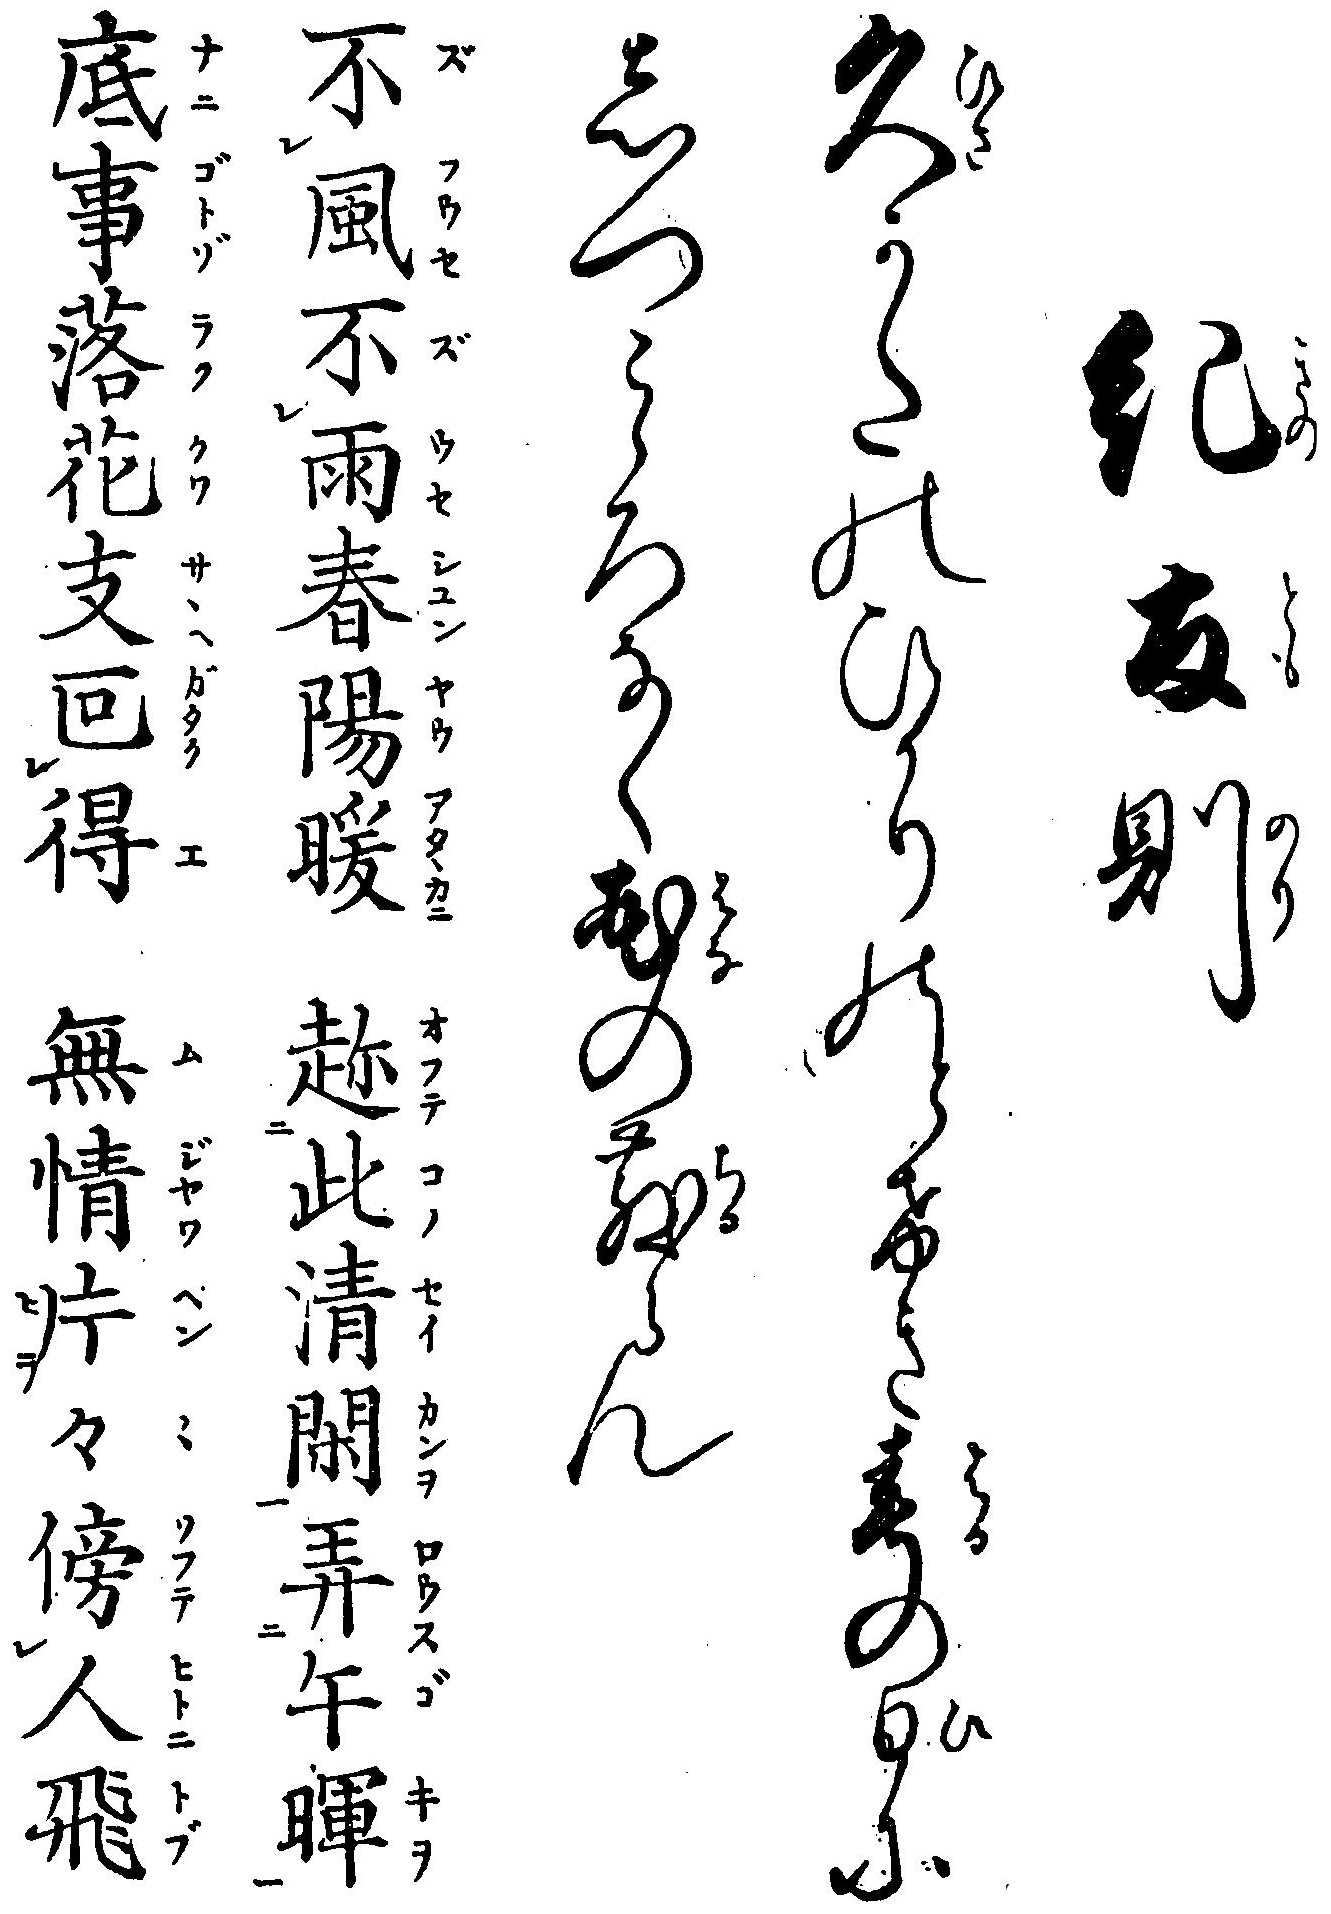 紀友則
久かたのひかりのとけき春の日に
志つこゝろなく花の散らん
不風不雨春陽暖 趂此清閑弄午暉
底事落花支回得 無情片々傍人飛